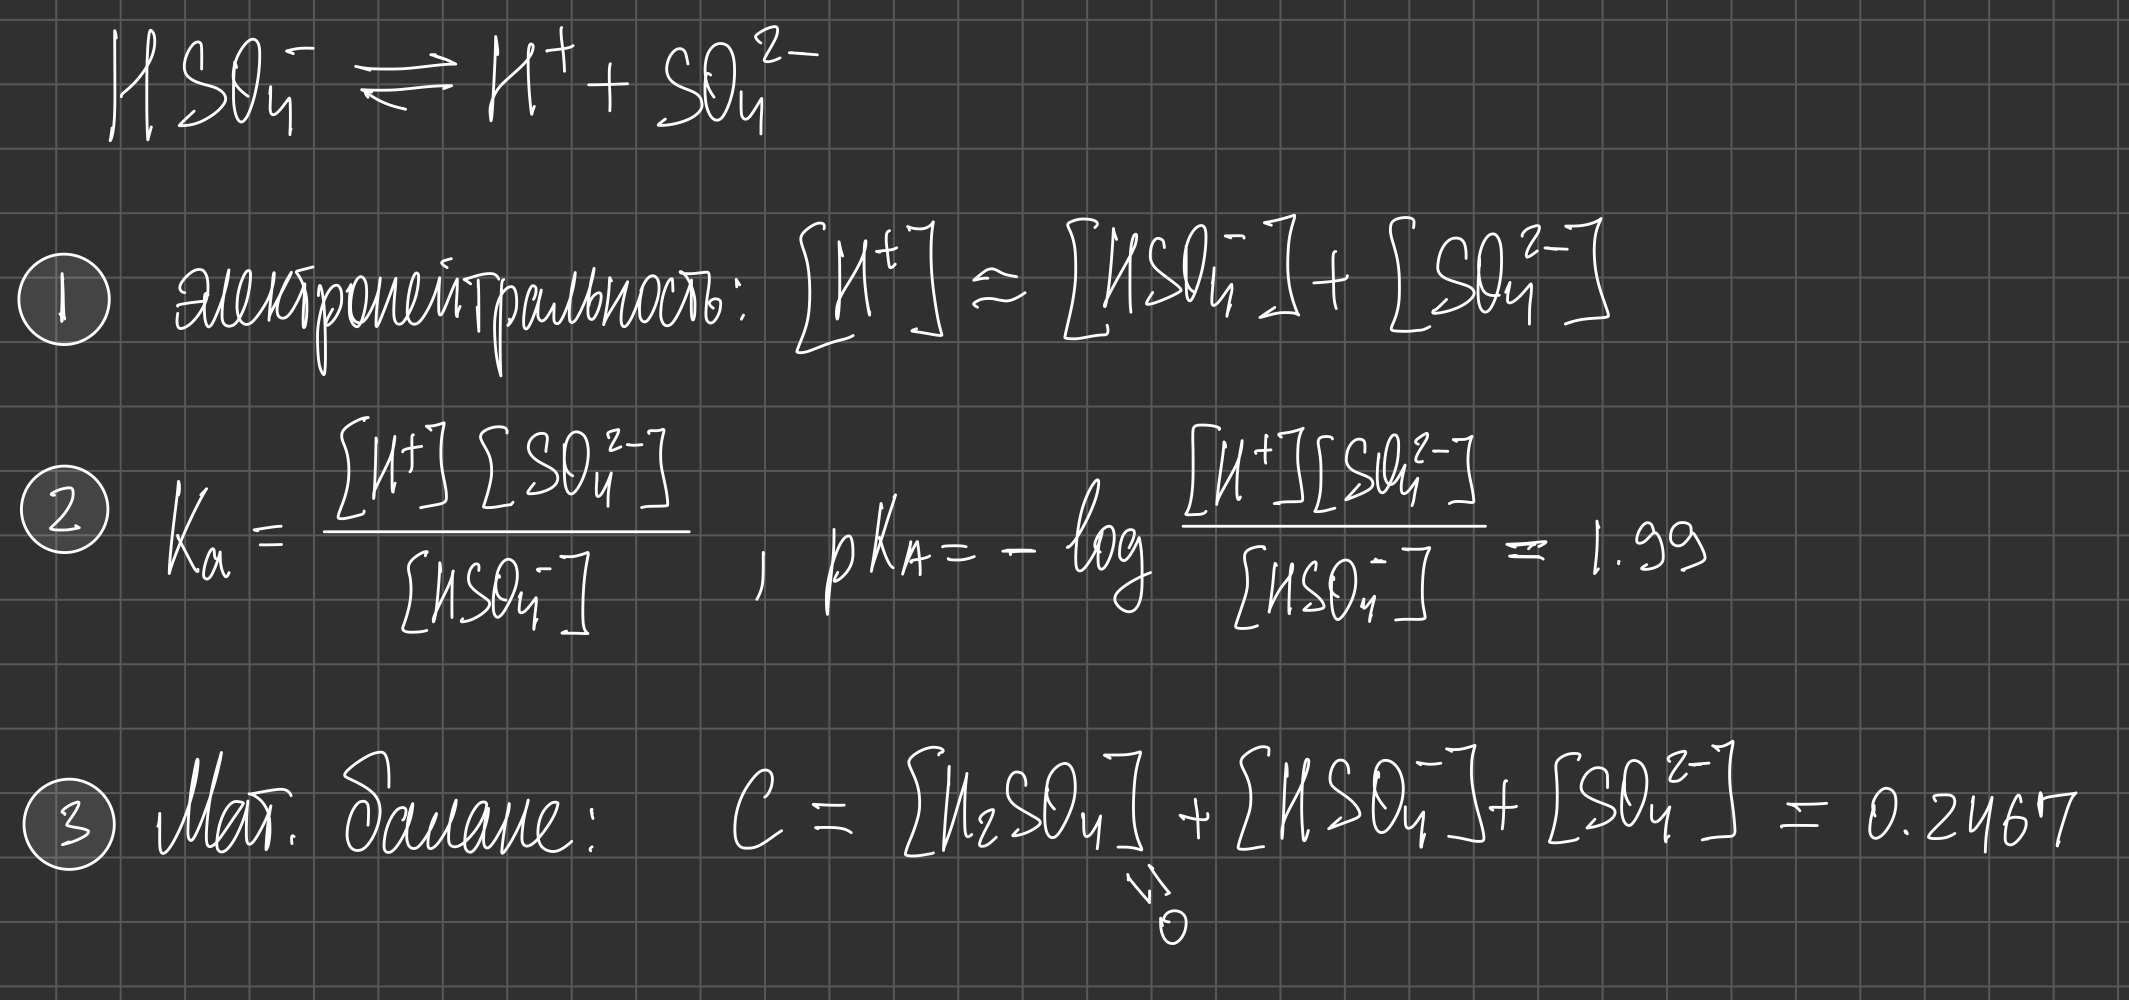 HSO₄⁻ ⇌ H⁺ + SO₄²⁻
① электронейтральность: [H⁺] ≃ [HSO₄⁻] + [SO₄²⁻]
② Kₐ = [H⁺][SO₄²⁻] / [HSO₄⁻] , pK_A = - log [H⁺][SO₄²⁻] / [HSO₄⁻] = 1.99
③ Мат. баланс: C = [H₂SO₄] + [HSO₄⁻] + [SO₄²⁻] = 0.2467
0